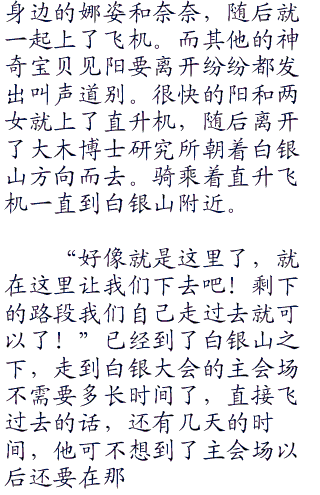 身边的娜姿和奈奈，随后就
一起上了飞机。而其他的神
奇宝贝见阳要离开纷纷都发
出叫声道别。很快的阳和两
女就上了直升机，随后离开
了大木博士研究所朝着白银
山方向而去。骑乘着直升飞
机一直到白银山附近。
“好像就是这里了，就
在这里让我们下去吧！剩下
的路段我们自己走过去就可
以了！”已经到了白银山之
下，走到白银大会的主会场
不需要多长时间了，直接飞
过去的话，还有几天的时
间，他可不想到了主会场以
后还要在那